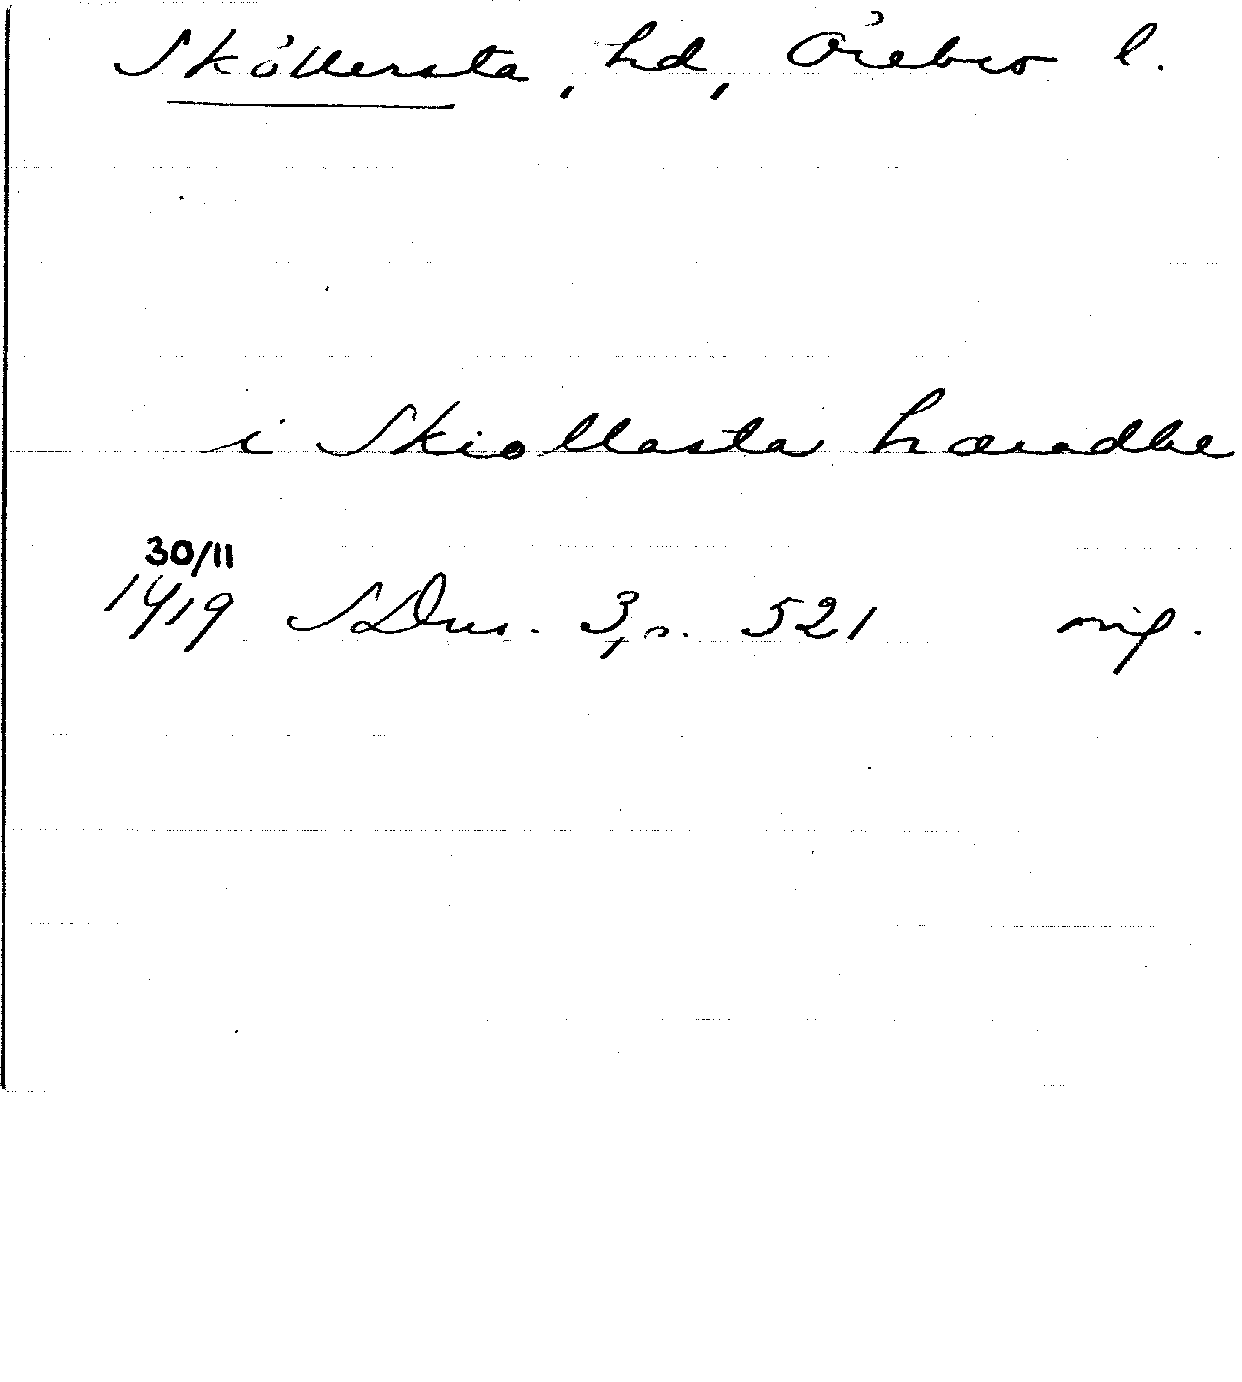 Sköllersta, hd, Örebro l.
i Skiollasta hæradhe
30/11
1419 SDns. 3, s. 521 orig.